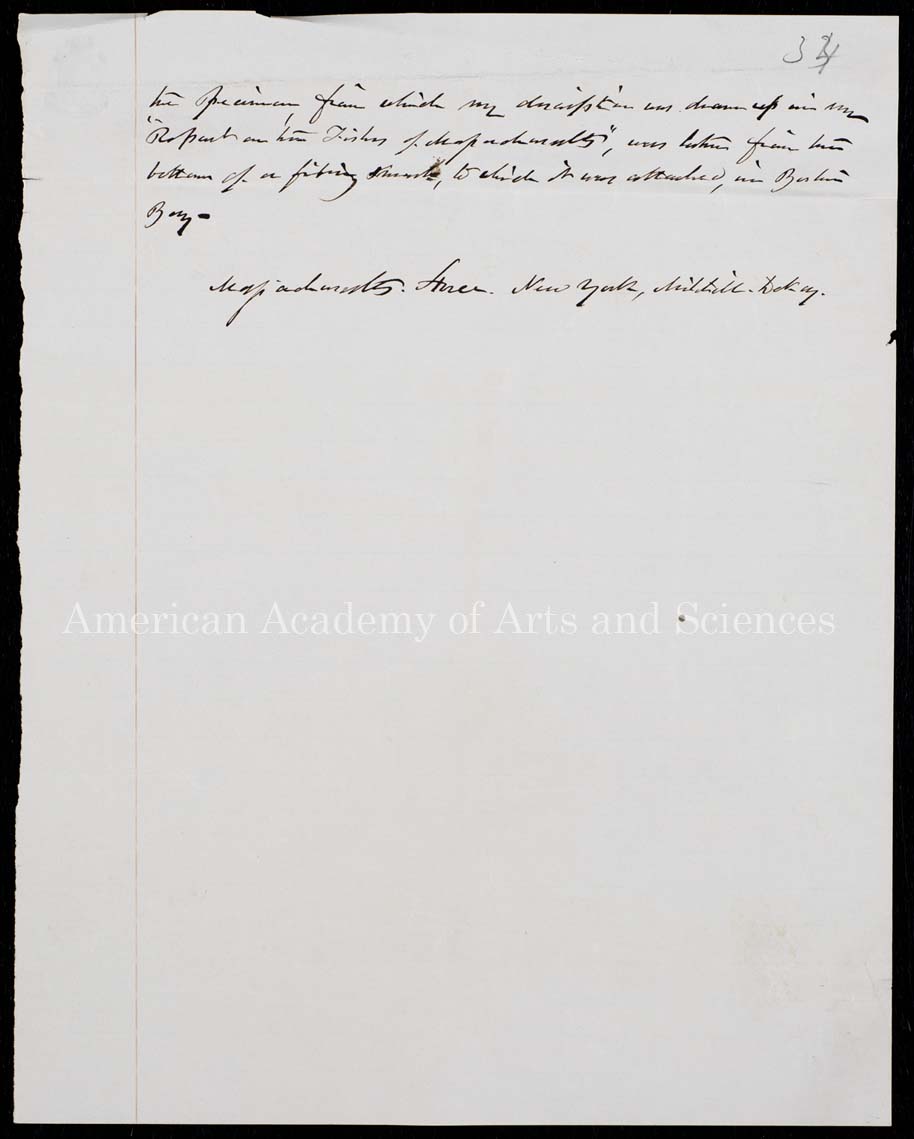 34
the specimen, from which my description was drawn up in my
"Report on the Fishes of Massachusetts", was taken from the
bottom of a fishing smack, to which it was attached, in Boston
Bay—
Massachusetts. Storer. New York, Mitchill. Dekay.
American Academy of Arts and Sciences